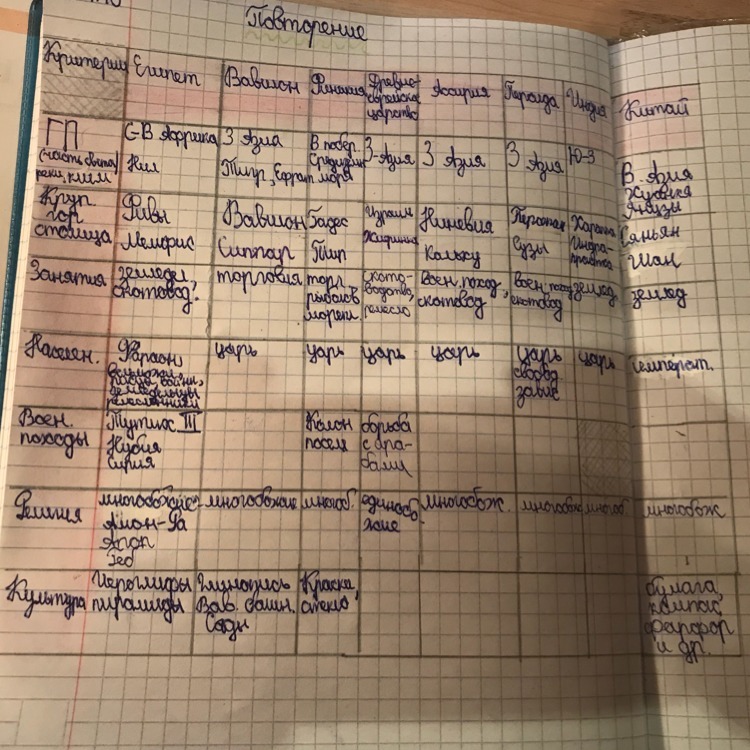 Повторение
Критерии Египет Вавилон Финикия Древне- Ассирия Персида Индия Китай
еврейское
царство
ГП С-В Африка З Азия В побер. З-Азия З Азия З Азия Ю-З В. Азия
(часть света, Нил Тигр, Евфрат Средиземн. Хуанхэ
реки, клим моря Янцзы
Круп. Фивы Вавилон Гадес Израиль Ниневия Персепол Хараппа Сяньян
гор
столица Мемфис Сиппар Тир Кальху Сузы Индра- Шан
Занятия земледел, торговля торг. ското- Воен. поход, воен. поход землед землед
скотовод. рыболов водство, скотовод скотовод
морепл. ремесло
Населен. Фараон царь царь царь царь царь царь император.
вельможи, свобод
писцы, воины, завис
земледельцы
ремесленники
Воен. Тутмос III Колон борьба
походы Нубия посел с ара-
Сирия бами
Религия многобожие многобожие многоб. единобо многобож. многобож многоб многобож
Амон-Ра жие
Апоп
Геб
Культура Иероглифы Глинопись Краска, бумага,
пирамиды Вав. башн. стекло компас
Сады фарфор
и др.